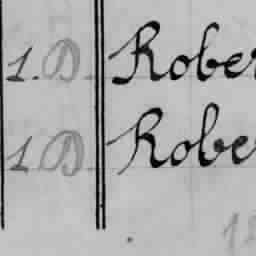 1. D. Rober
1 D Robe